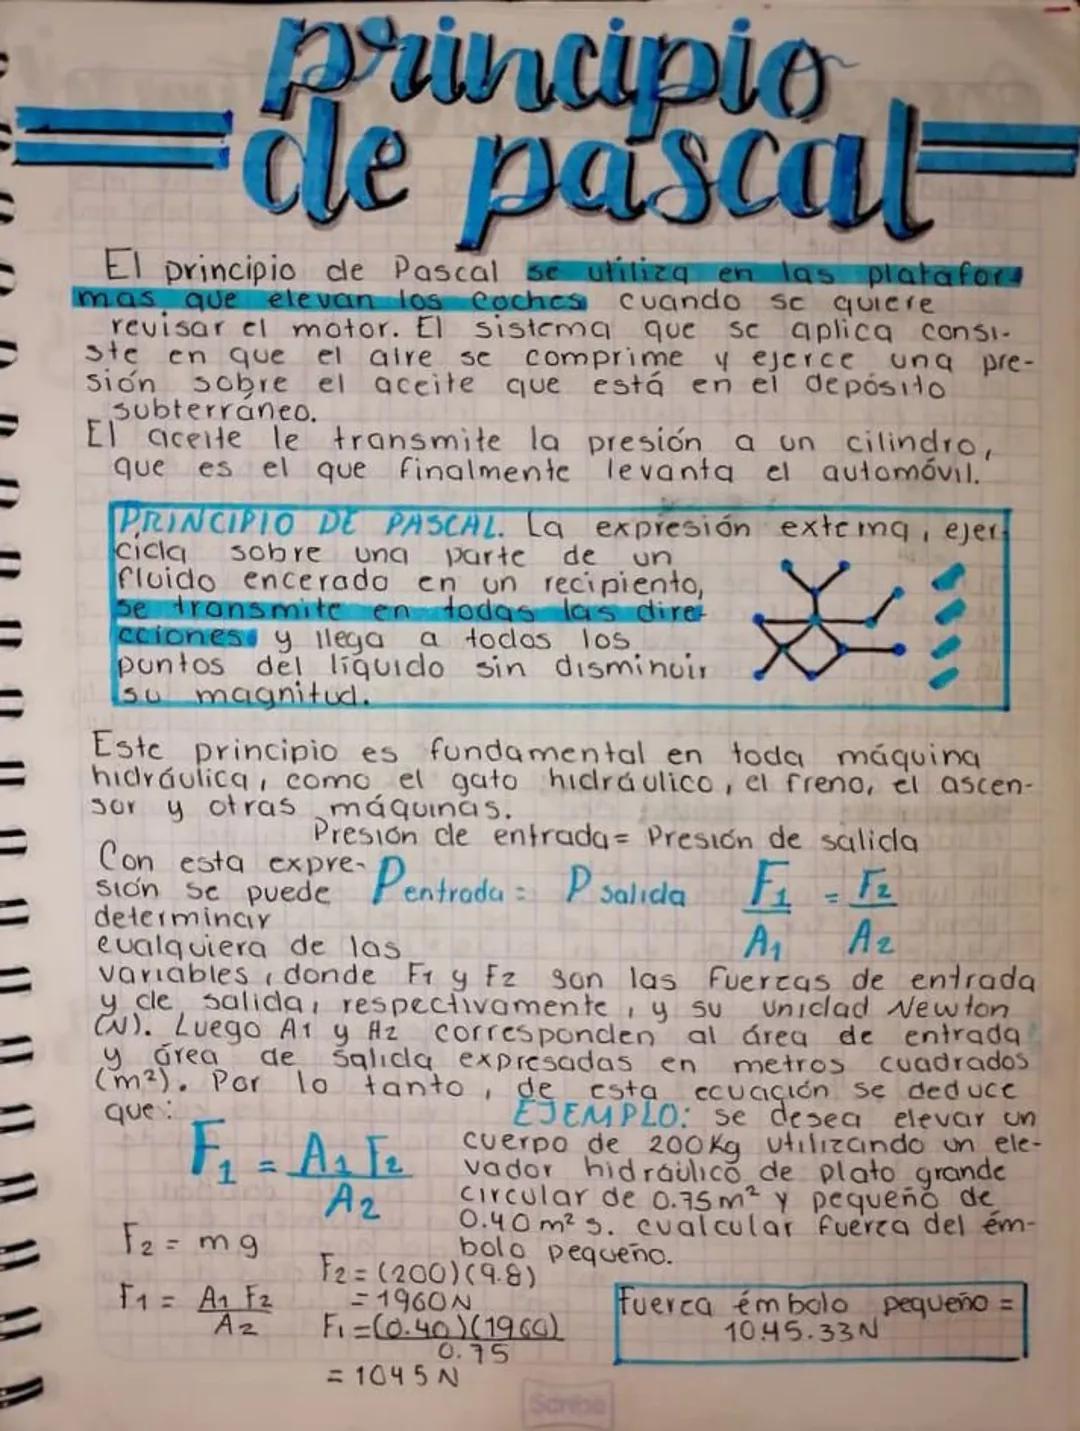 principio
de pascal
El principio de Pascal se utiliza en las platafor-
mas que elevan los coches cuando se quiere
revisar el motor. El sistema que se aplica consi-
ste en que el aire se comprime y ejerce una pre-
sión sobre el aceite que está en el depósito
subterráneo.
El aceite le transmite la presión a un cilindro,
que es el que finalmente levanta el automóvil.
PRINCIPIO DE PASCAL. La expresión externa, ejer
cida sobre una parte de un
fluido encerado en un recipiento,
se transmite en todas las dire-
cciones y llega a todos los
puntos del líquido sin disminuir
su magnitud.
Este principio es fundamental en toda máquina
hidráulica, como el gato hidráulico, el freno, el ascen-
sor y otras máquinas.
Presión de entrada = Presión de salida
Con esta expre-
sión se puede
determinar
cualquiera de las
P entrada = P salida F1 = F2
A1 A2
variables, donde F1 y F2 son las fuerzas de entrada
y de salida, respectivamente, y su unidad Newton
(N). Luego A1 y A2 corresponden al área de entrada
y área de salida expresadas en metros cuadrados
(m²). Por lo tanto, de esta ecuación se deduce
que:
F1 = A1 F2
A2
EJEMPLO: se desea elevar un
cuerpo de 200Kg utilizando un ele-
vador hidráulico de plato grande
circular de 0.75m² y pequeño de
0.40m² s. cualcular fuerza del ém-
bolo pequeño.
F2 = mg
F1 = A1 F2
A2
F2 = (200)(9.8)
= 1960N
F1 = (0.40)(1960)
0.75
= 1045N
Fuerza émbolo pequeño =
1045.33N
Scribe